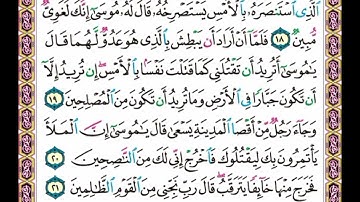 ٱلَّذِى ٱسْتَنصَرَهُۥ بِٱلْأَمْسِ يَسْتَصْرِخُهُۥ ۚ قَالَ لَهُۥ مُوسَىٰٓ إِنَّكَ لَغَوِىٌّ
مُّبِينٌ ١٨ فَلَمَّآ أَنْ أَرَادَ أَن يَبْطِشَ بِٱلَّذِى هُوَ عَدُوٌّ لَّهُمَا قَالَ
يَٰمُوسَىٰٓ أَتُرِيدُ أَن تَقْتُلَنِى كَمَا قَتَلْتَ نَفْسًۢا بِٱلْأَمْسِ ۖ إِن تُرِيدُ إِلَّآ
أَن تَكُونَ جَبَّارًا فِى ٱلْأَرْضِ وَمَا تُرِيدُ أَن تَكُونَ مِنَ ٱلْمُصْلِحِينَ
١٩ وَجَآءَ رَجُلٌ مِّنْ أَقْصَا ٱلْمَدِينَةِ يَسْعَىٰ قَالَ يَٰمُوسَىٰٓ إِنَّ ٱلْمَلَأَ
يَأْتَمِرُونَ بِكَ لِيَقْتُلُوكَ فَٱخْرُجْ إِنِّى لَكَ مِنَ ٱلنَّٰصِحِينَ ٢٠
فَخَرَجَ مِنْهَا خَآئِفًا يَتَرَقَّبُ ۖ قَالَ رَبِّ نَجِّنِى مِنَ ٱلْقَوْمِ ٱلظَّٰلِمِينَ ٢١